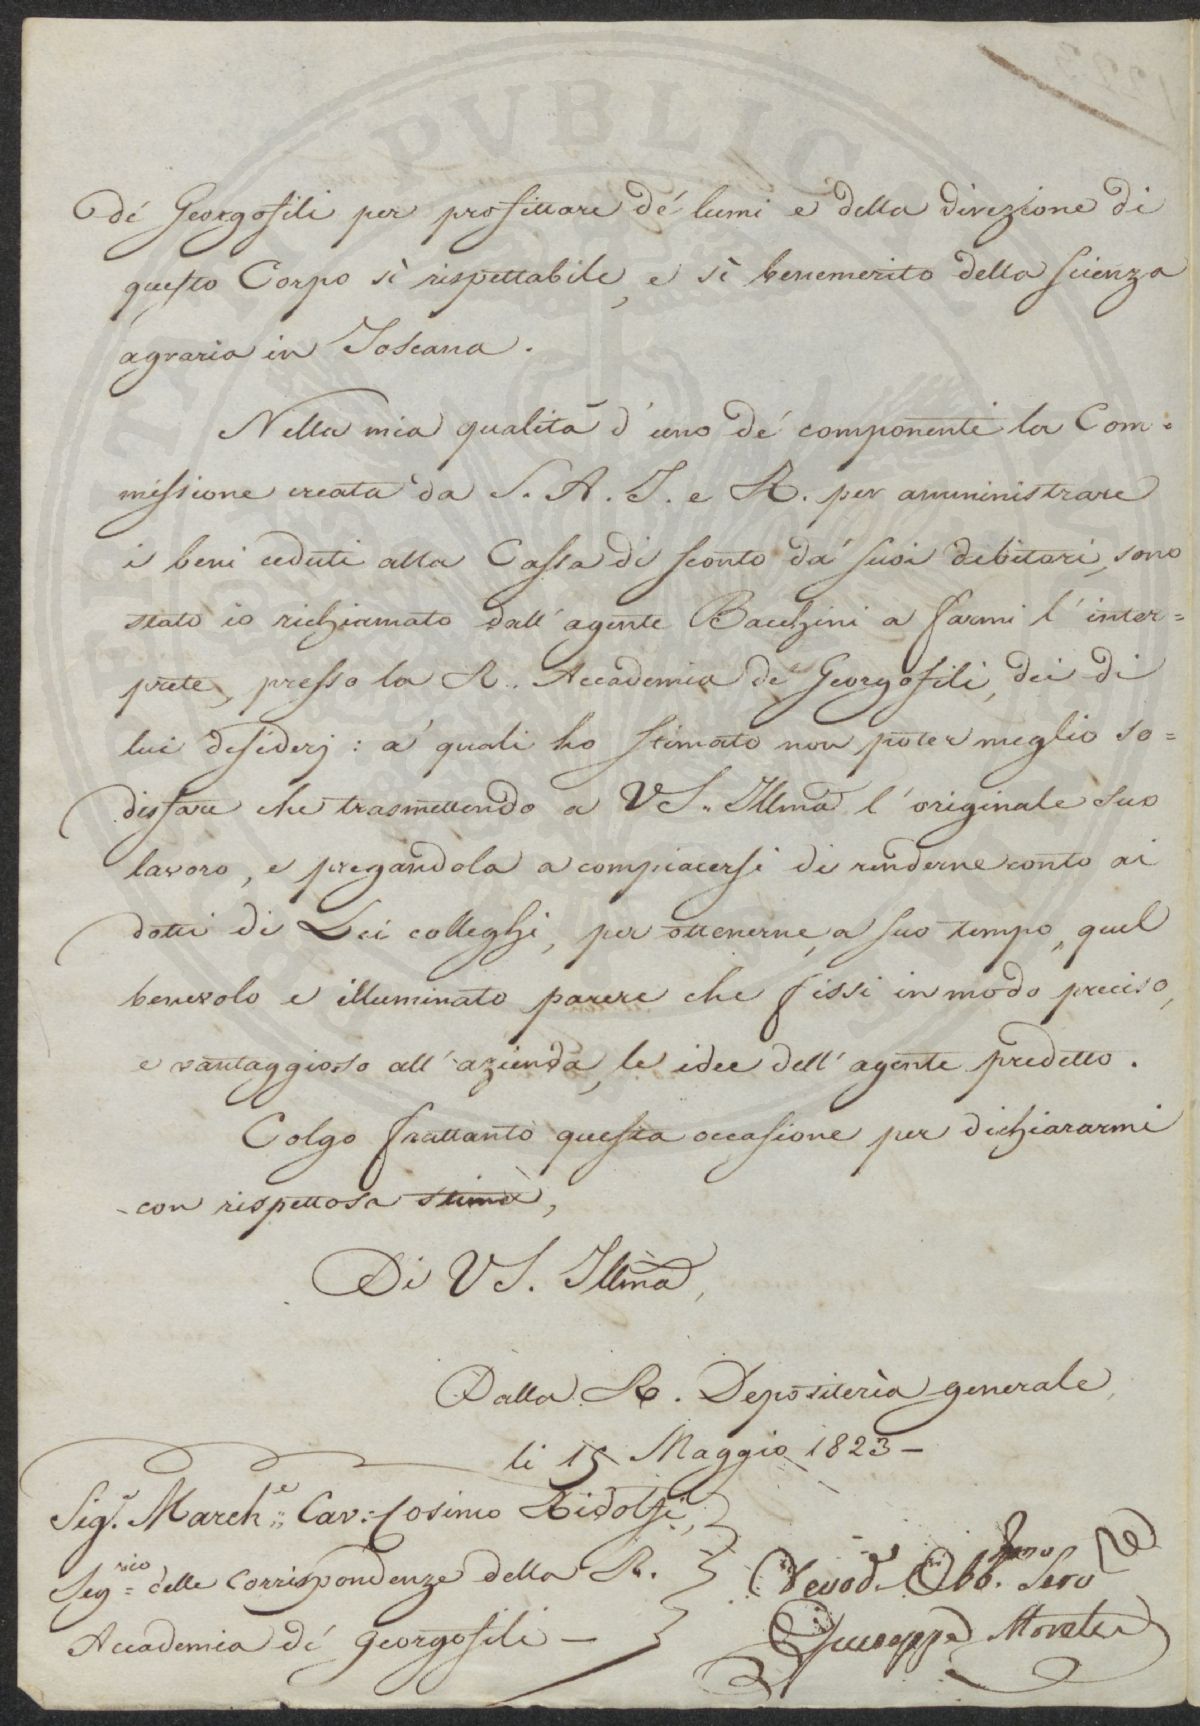 de' Georgofili per profittare de' lumi e della direzione di
questo Corpo sì rispettabile, e sì benemerito della scienza
agraria in Toscana.
Nella mia qualità d'uno de' componenti la Com=
missione creata da S. A. I. e R. per amministrare
i beni ceduti alla Cassa di sconto da' suoi debitori, sono
stato io richiamato dall'agente Bacchini a farmi l'inter=
prete, presso la R. Accademia de' Georgofili, dei di
lui desiderj: a' quali ho stimato non poter meglio so=
disfare che trasmettendo a VS. Illma l'originale suo
lavoro, e pregandola a compiacersi di renderne conto ai
dotti di Lei colleghi, per ottenerne, a suo tempo, quel
benevolo e illuminato parere che fissi in modo preciso,
e vantaggioso all'azienda, le idee dell'agente predetto.
Colgo frattanto questa occasione per dichiararmi
con rispettosa stima,
Di VS. Illma,
Dalla R. Depositeria generale,
li 15 Maggio 1823 —
Sigr. Marche. Cav: Cosimo Ridolfi,
Segrio = delle corrispondenze della R.
Accademia de' Georgofili —
Devod. Obb.mo Serv
Giuseppe
PVBLIC